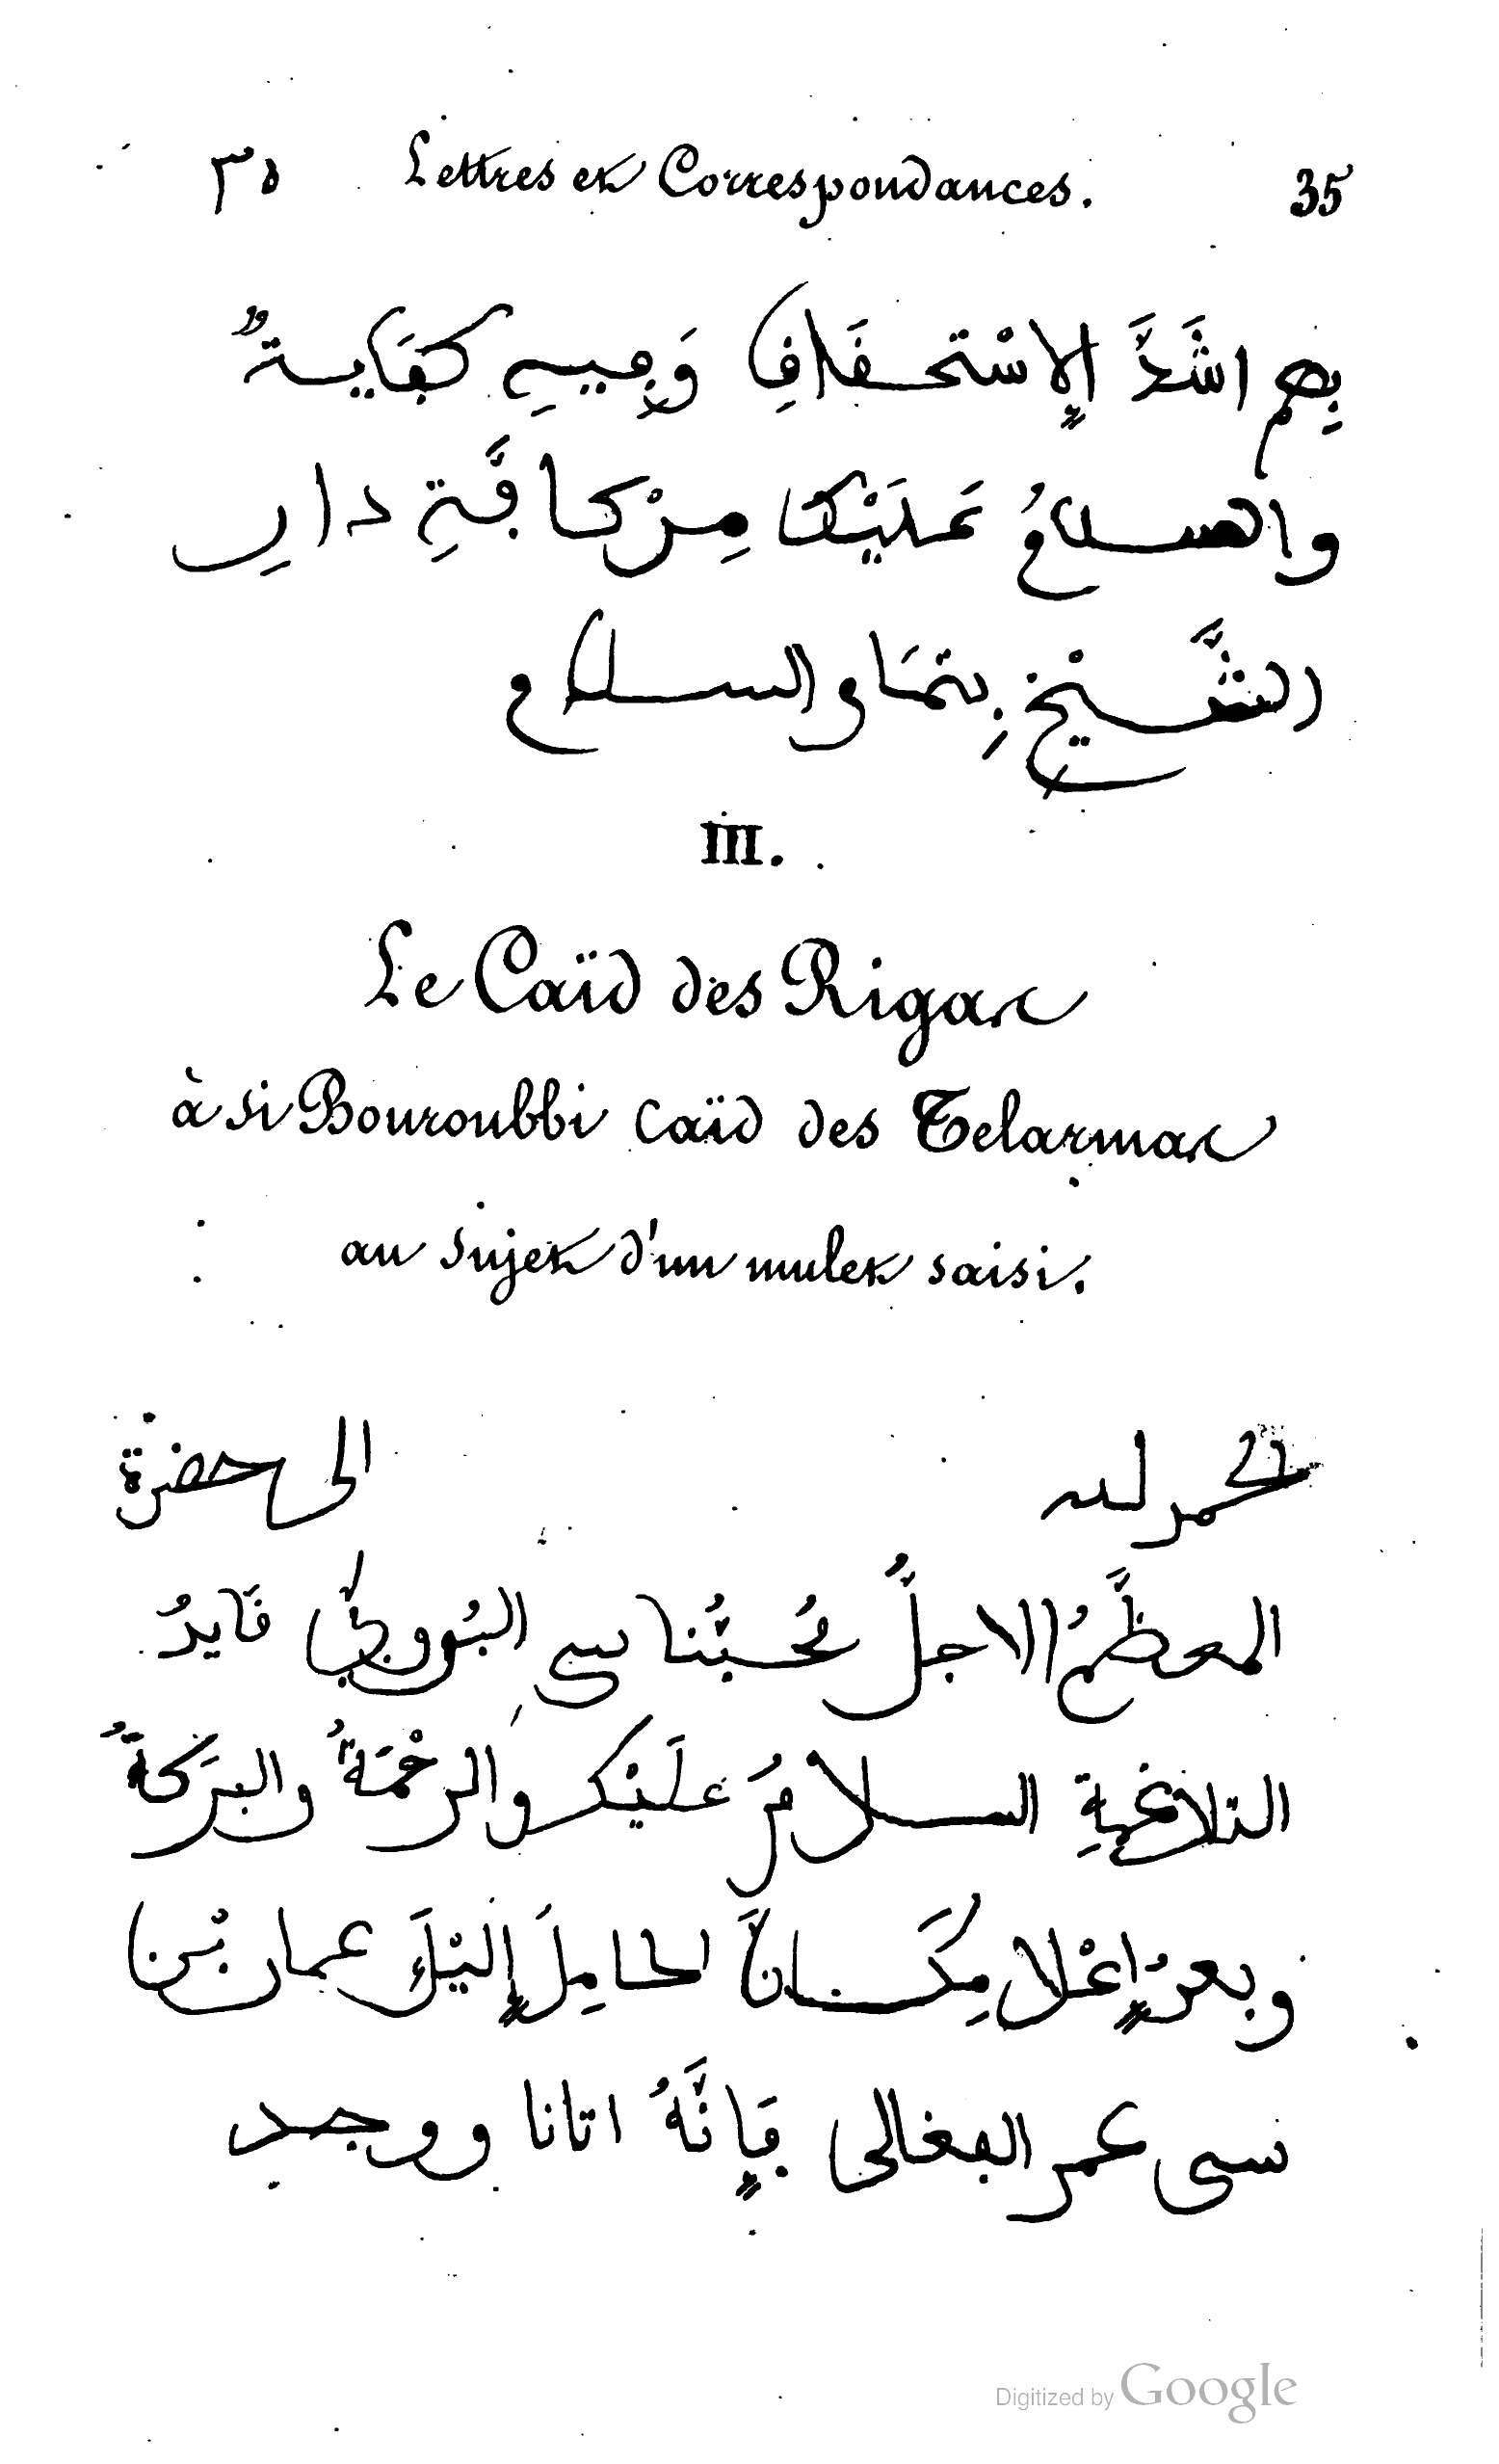 ٣٥ Lettres et Correspondances. 35
بِهِم اشَدَّ الاِسْتحفَافِ وَفِيهِ كِفَايةٌ
والسلامُ عَلَيْك مِنْ كافَّةِ دارِ
الشَّيْخ والسلام
III.
Le Caïd des Rigar
à si Bouroubbi caïd des Telarmar
au sujet d'un mulet saisi.
الحمد لله الى حضرة
المعظَّمُ الاجلُّ مُحبُّنا سي قَايدُ
السلامُ عليْك والرحْمَةُ والبرَكةُ
وبعدُ إعْلامكَ انَّ الحامِلَ إليْكَ عمار بْن
سى عمر البغالى فإنَّهُ اتانا ووجد
Digitized by Google